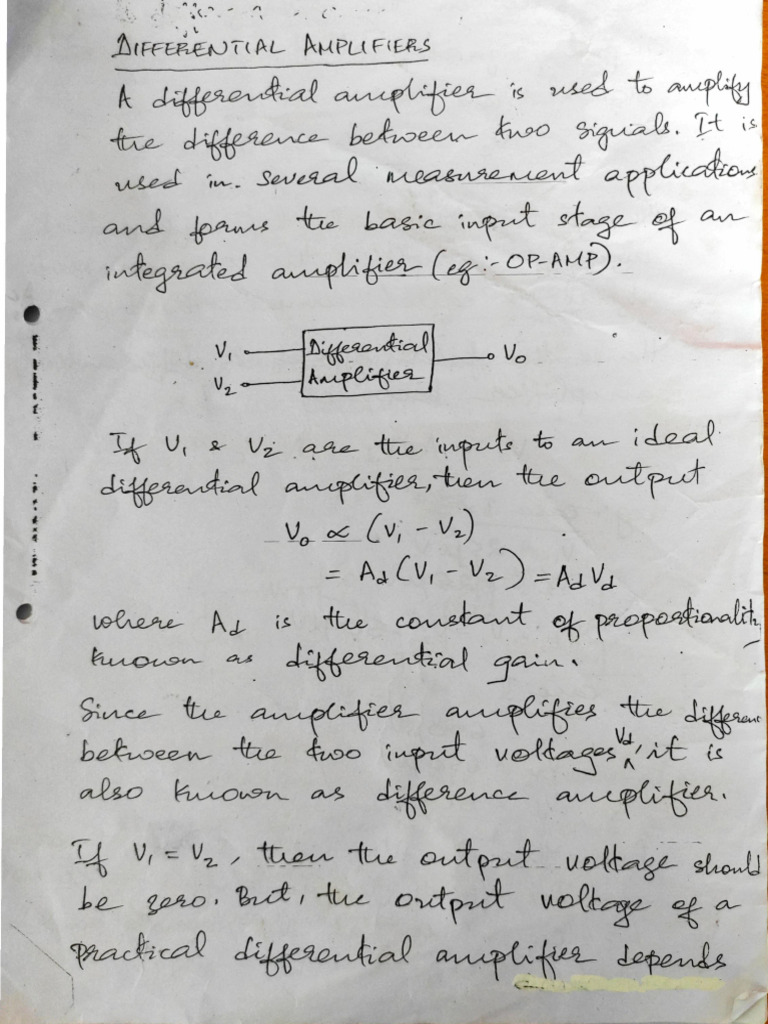 DIFFERENTIAL AMPLIFIERS
A differential amplifier is used to amplify
the difference between two signals. It is
used in. several measurement applications
and forms the basic input stage of an
integrated amplifier (eg:- OP-AMP).
V₁ Differential V₀
V₂ Amplifier
If V₁ & V₂ are the inputs to an ideal
differential amplifier, then the output
V₀ ∝ (V₁ - V₂)
= A_d (V₁ - V₂) = A_d V_d
where A_d is the constant of proportionality
known as differential gain.
Since the amplifier amplifies the different
between the two input voltages V_d, it is
also known as difference amplifier.
If V₁ = V₂, then the output voltage should
be zero. But, the output voltage of a
practical differential amplifier depends